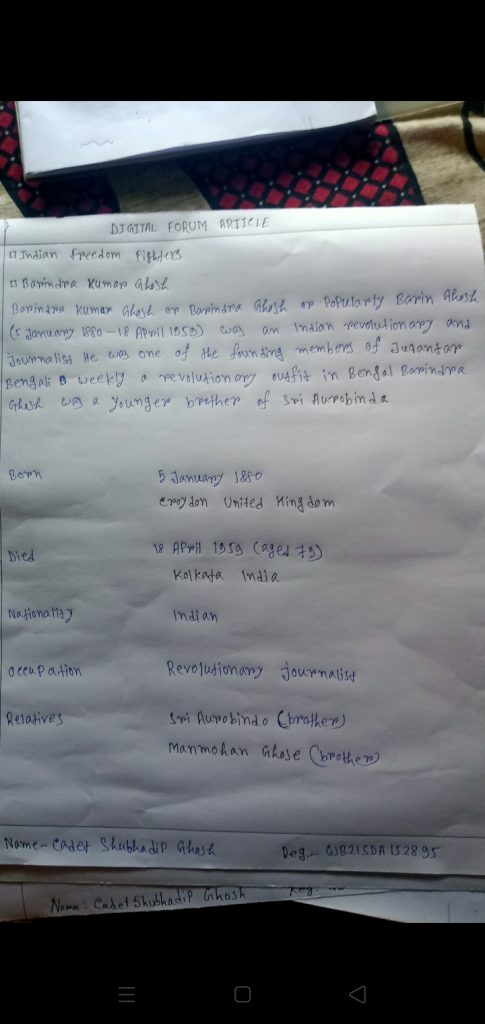 DIGITAL FORUM ARTICLE
Indian freedom fighters
Barindra Kumar Ghosh
Barindra Kumar Ghosh or Barindra Ghosh or Popularly Barin Ghosh
(5 January 1880 - 18 April 1959) was an Indian revolutionary and
Journalist He was one of the founding members of Jugantar
Bengali weekly a revolutionary outfit in Bengal Barindra
Ghosh was a younger brother of Sri Aurobinda
Born 5 January 1880
Croydon United Kingdom
Died 18 April 1959 (aged 79)
Kolkata India
Nationality Indian
Occupation Revolutionary journalist
Relatives Sri Aurobindo (brother)
Manmohan Ghose (brother)
Name - Cadet Shubhadip Ghosh Reg.- WB21SDA152895
Name: Cadet Shubhadip Ghosh Reg